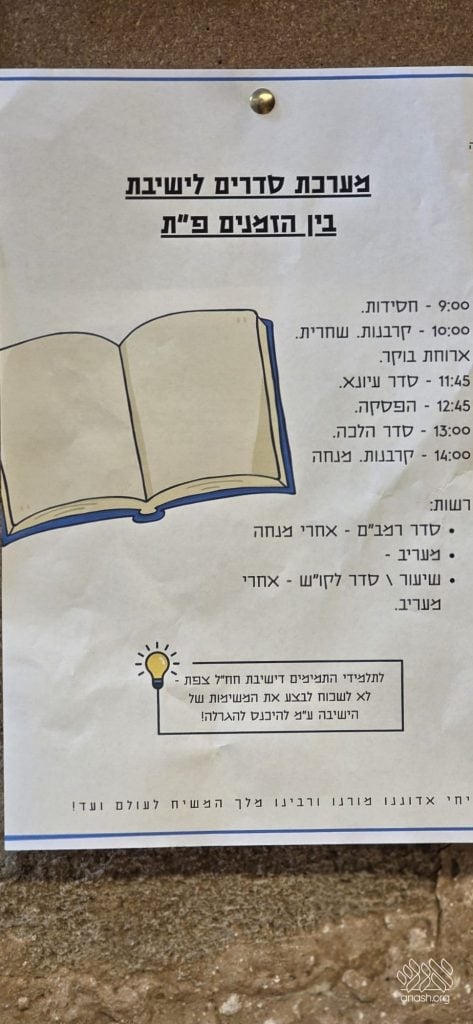 מערכת סדרים לישיבת
בין הזמנים פ"ת
9:00 - חסידות.
10:00 - קרבנות. שחרית.
ארוחת בוקר.
11:45 - סדר עיונא.
12:45 - הפסקה.
13:00 - סדר הלכה.
14:00 - קרבנות. מנחה
רשות:
• סדר רמב"ם - אחרי מנחה
• מעריב -
• שיעור \ סדר לקו"ש - אחרי
מעריב.
לתלמידי התמימים דישיבת חח"ל צפת -
לא לשכוח לבצע את המשימות של
הישיבה ע"מ להיכנס להגרלה!
יחי אדוננו מורנו ורבינו מלך המשיח לעולם ועד!
anash.org